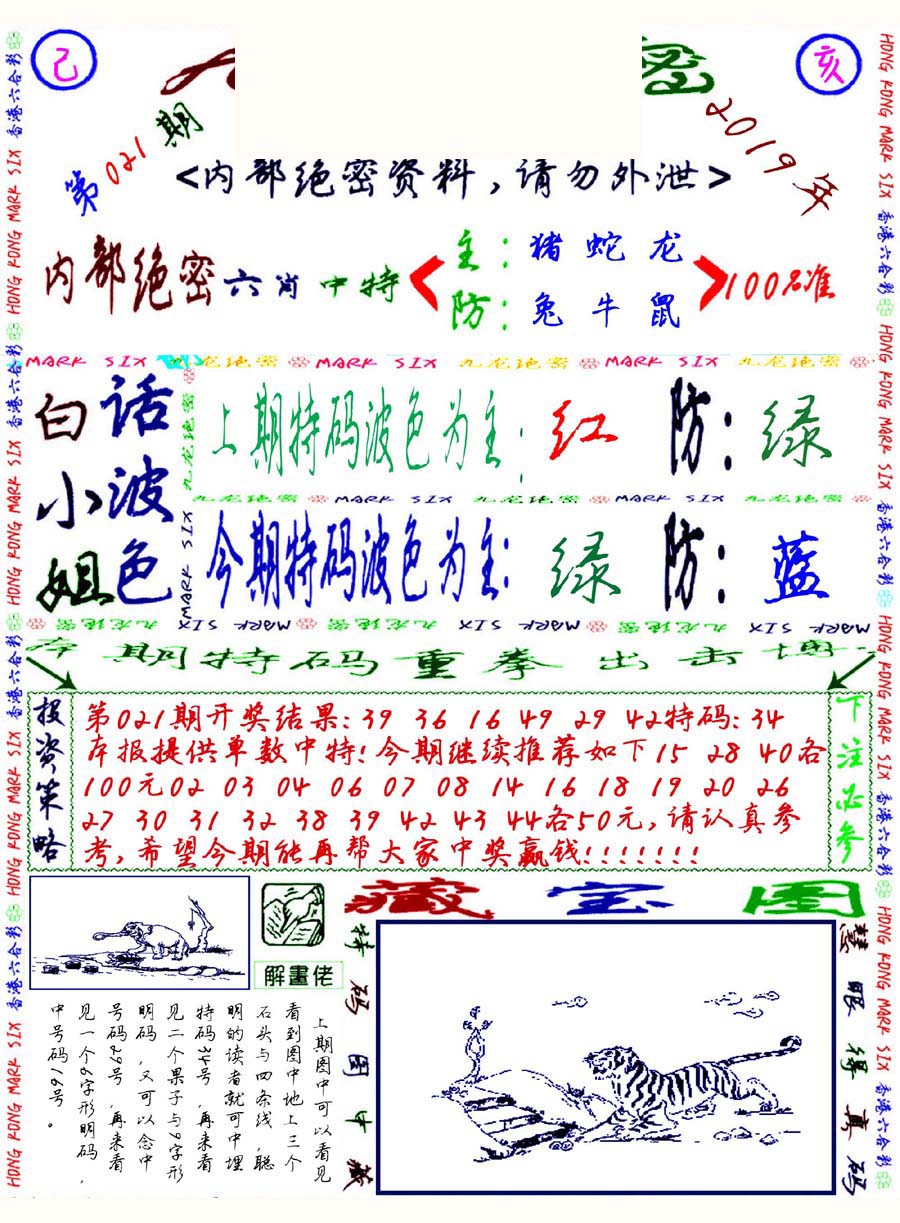 己
亥
第021期
2019年
<内部绝密资料,请勿外泄>
内部绝密六肖中特
主:猪 蛇 龙
防:兔 牛 鼠
100%准
MARK SIX 九龙绝密 MARK SIX 九龙绝密 MARK SIX 九龙绝密
白话
小波
姐色
上期特码波色为主:红 防:绿
九龙绝密 MARK SIX 九龙绝密 MARK SIX 九龙绝密
今期特码波色为主:绿 防:蓝
九龙绝密 MARK SIX 九龙绝密 MARK SIX 九龙绝密 MARK SIX
本期特码重拳出击博
投资策略
第021期开奖结果:39 36 16 49 29 42特码:34
本报提供单数中特!今期继续推荐如下15 28 40各
100元02 03 04 06 07 08 14 16 18 19 20 26
27 30 31 32 38 39 42 43 44各50元,请认真参
考,希望今期能再帮大家中奖赢钱!!!!!!!
下注必参
解畫佬
藏宝图
特码图中藏
慧眼得真码
上期图中可以看见
看到图中地上三个
石头与四条线,聪
明的读者就可中埋
特码34号,再来看
见二个果子与9字形
明码,又可以念中
号码29号,再来看
见一个6字形明码,
中号码16号。
HONG KONG MARK SIX 香港六合彩 HONG KONG MARK SIX 香港六合彩 HONG KONG MARK SIX 香港六合彩 HONG KONG MARK SIX 香港六合彩
HONG KONG MARK SIX 香港六合彩 HONG KONG MARK SIX 香港六合彩 HONG KONG MARK SIX 香港六合彩 HONG KONG MARK SIX 香港六合彩